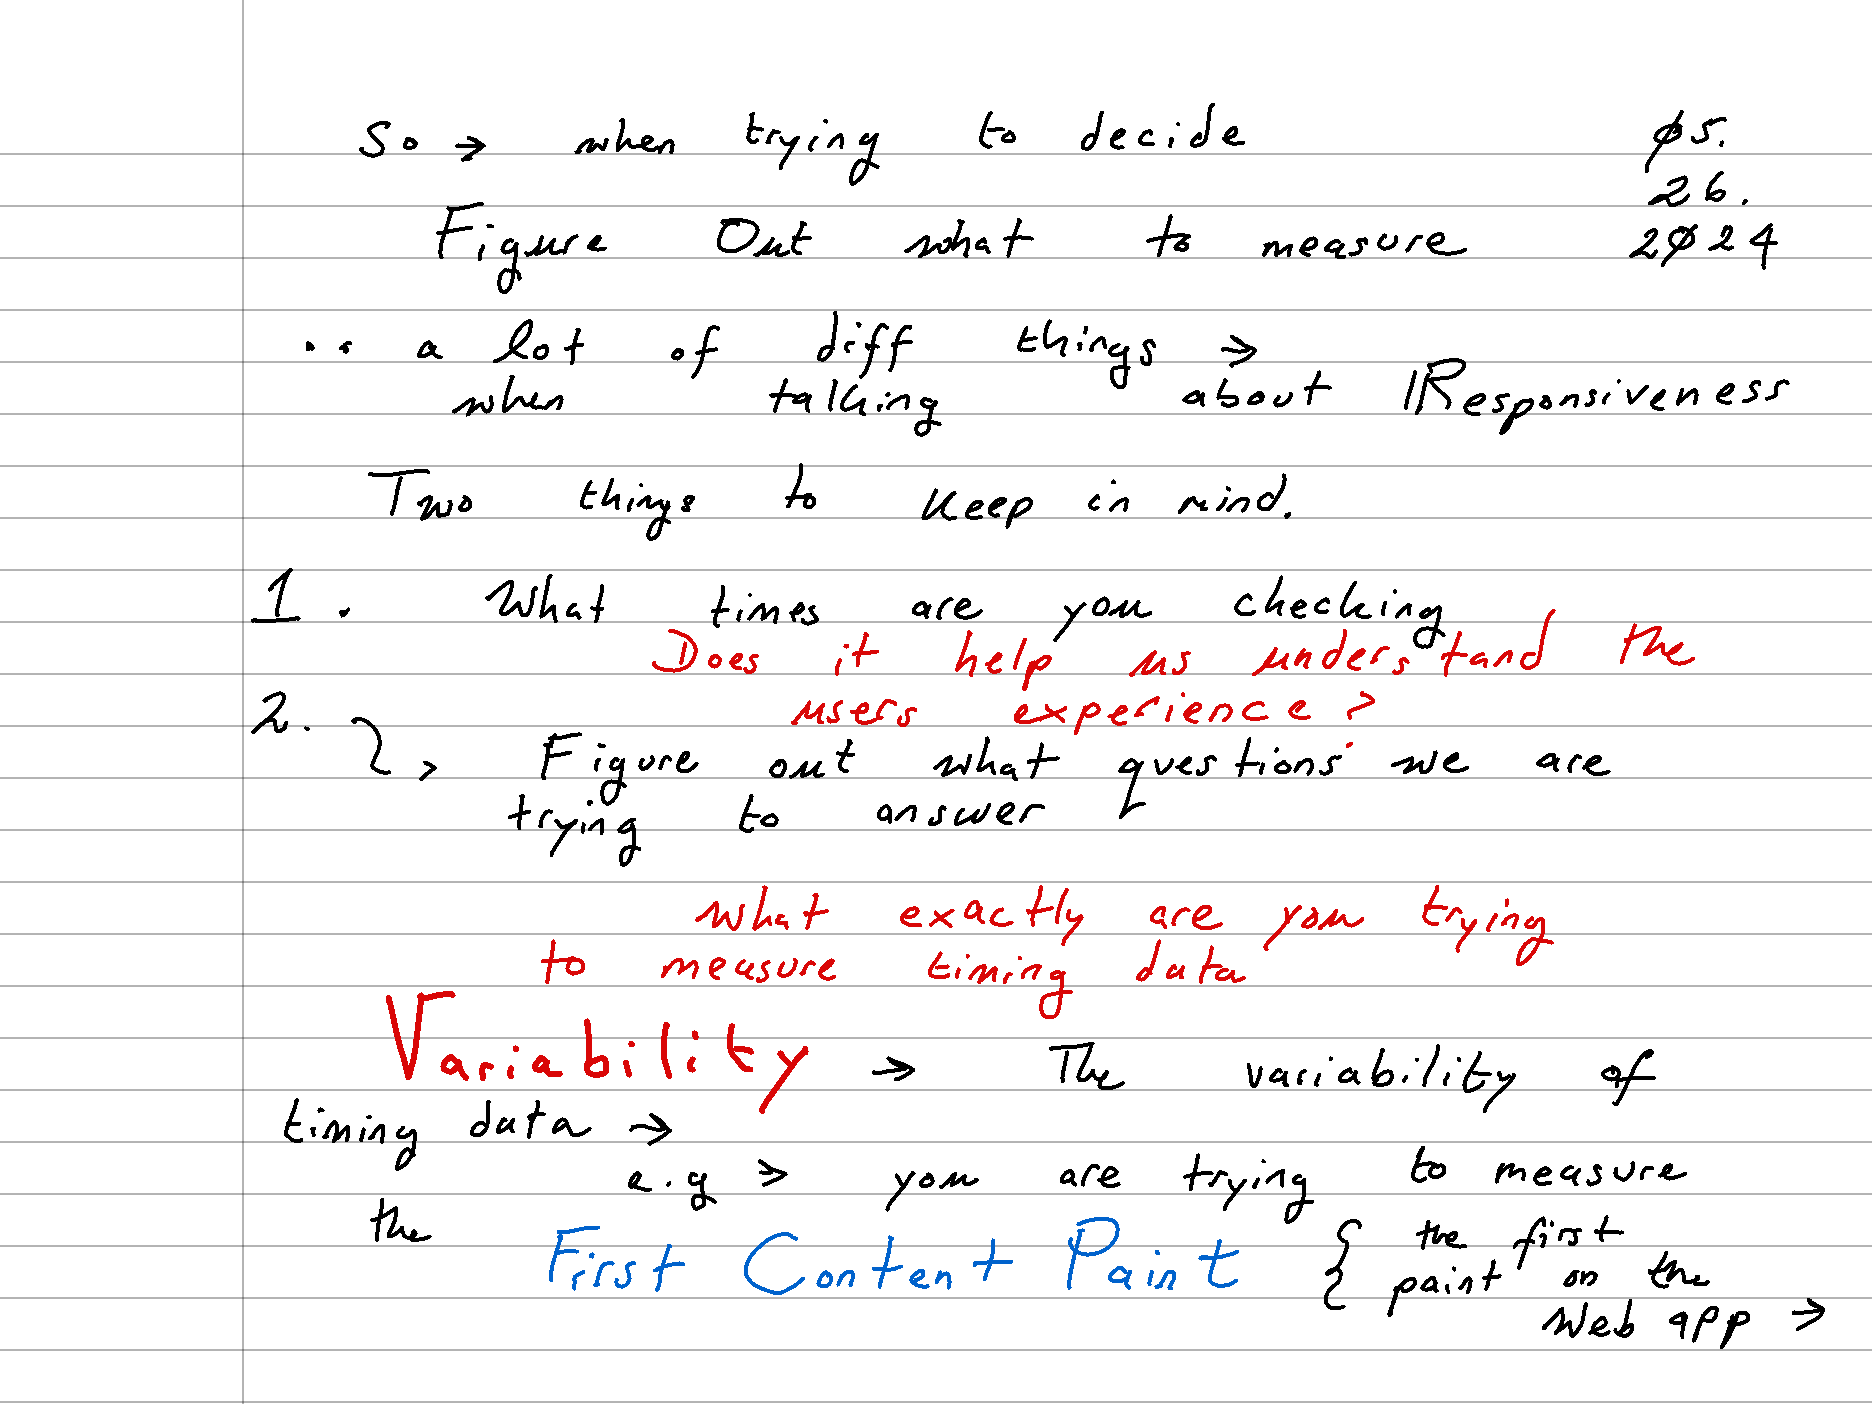 So → when trying to decide
Ø5.
26.
2Ø24
Figure Out what to measure
.. a lot of diff things →
when talking about Responsiveness
Two things to keep in mind.
1. What times are you checking
Does it help us understand the
users experience?
2. > Figure out what questions we are
trying to answer
what exactly are you trying
to measure timing data
Variability → The variability of
timing data →
e.g > you are trying to measure
the First Content Paint { the first
paint on the
Web app →